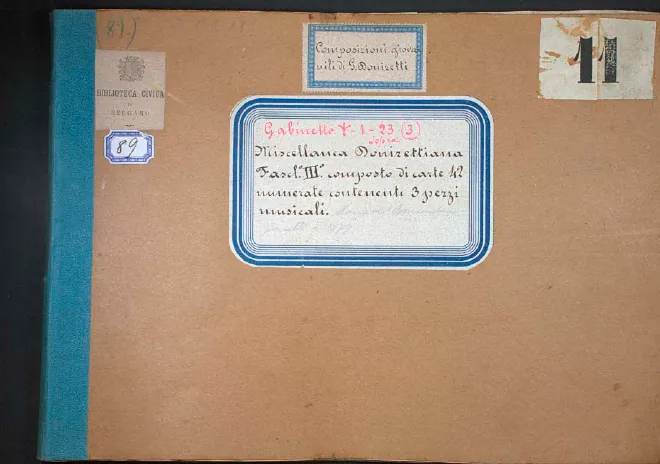 89)
Composizioni giova
nili di G. Donizetti
11
BIBLIOTECA CIVICA
DI
BERGAMO
89
Gabinetto V-1-23 (3)
sopra
Miscellanea Donizettiana
Fasc.º III.º composto di carte 42
numerate contenenti 3 pezzi
musicali.